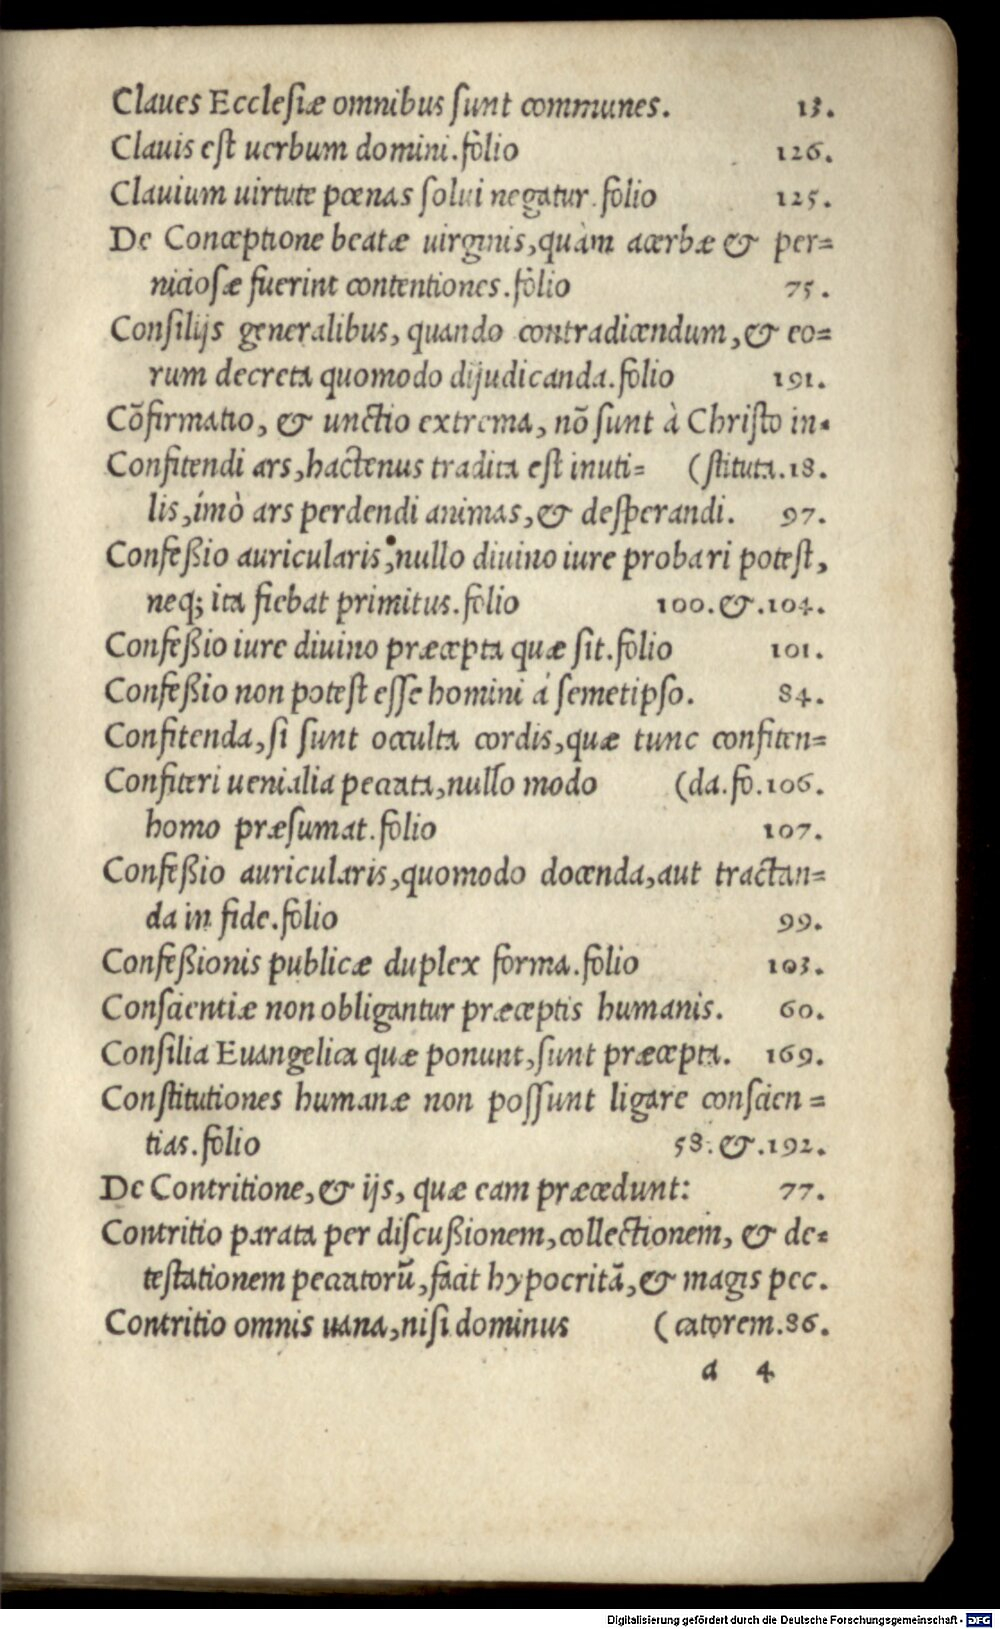 Claues Ecclesiæ omnibus sunt communes. 13.
Clauis est uerbum domini.folio 126.
Clauium uirtute pœnas solui negatur.folio 125.
De Conceptione beatæ uirginis,quàm acerbæ & per=
niciosæ fuerint contentiones.folio 75.
Consilijs generalibus, quando contradicendum,& eo=
rum decreta quomodo dijudicanda.folio 191.
Cõfirmatio, & unctio extrema, nõ sunt à Christo in=
Confitendi ars,hactenus tradita est inuti= (stituta.18.
lis,imò ars perdendi animas,& desperandi. 97.
Confeßio auricularis,nullo diuino iure probari potest,
neq; ita fiebat primitus.folio 100.&.104.
Confeßio iure diuino præcepta quæ sit.folio 101.
Confeßio non potest esse homini á semetipso. 84.
Confitenda,si sunt occulta cordis,quæ tunc confiten=
Confiteri uenialia peccata,nullo modo (da.fo.106.
homo præsumat.folio 107.
Confeßio auricularis,quomodo docenda,aut tractan=
da in fide.folio 99.
Confeßionis publicæ duplex forma.folio 103.
Conscientiæ non obligantur præceptis humanis. 60.
Consilia Euangelica quæ ponunt,sunt præcepta. 169.
Constitutiones humanæ non possunt ligare conscien=
tias.folio 58.&.192.
De Contritione,& ijs, quæ eam præcedunt: 77.
Contritio parata per discußionem,collectionem, & de=
testationem peccatorũ,facit hypocritã,& magis pec.
Contritio omnis uana,nisi dominus (catorem.86.
a 4
Digitalisierung gefördert durch die Deutsche Forschungsgemeinschaft - DFG